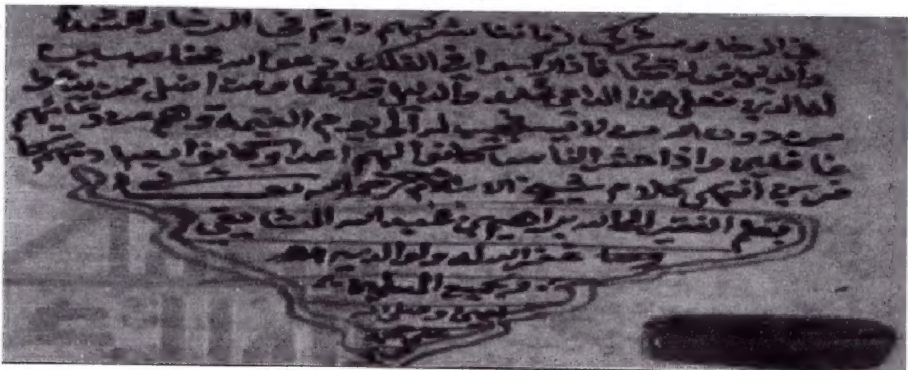 في الرخا و مشركي زماننا شركهم دايم في الرخا والشدة
والدليل قوله تعالى فاذا ركبوا في الفلك دعوا الله مخلصين
له الدين فعلى هذا الداعي عابد والدليل قوله تعالى ومن اضل ممن يدعو
من دون الله من لا يستجيب له الى يوم القيمة وهم عن دعائهم
غافلون واذا حشر الناس كانوا لهم اعداء وكانوا بعبادتهم
كافرين انتهى كلام شيخ الاسلام رحمه الله
بقلم الفقير الى الله ابراهيم بن عبد الله الشايقي
غفر الله له ولوالديه
وجميع المسلمين
وصلى